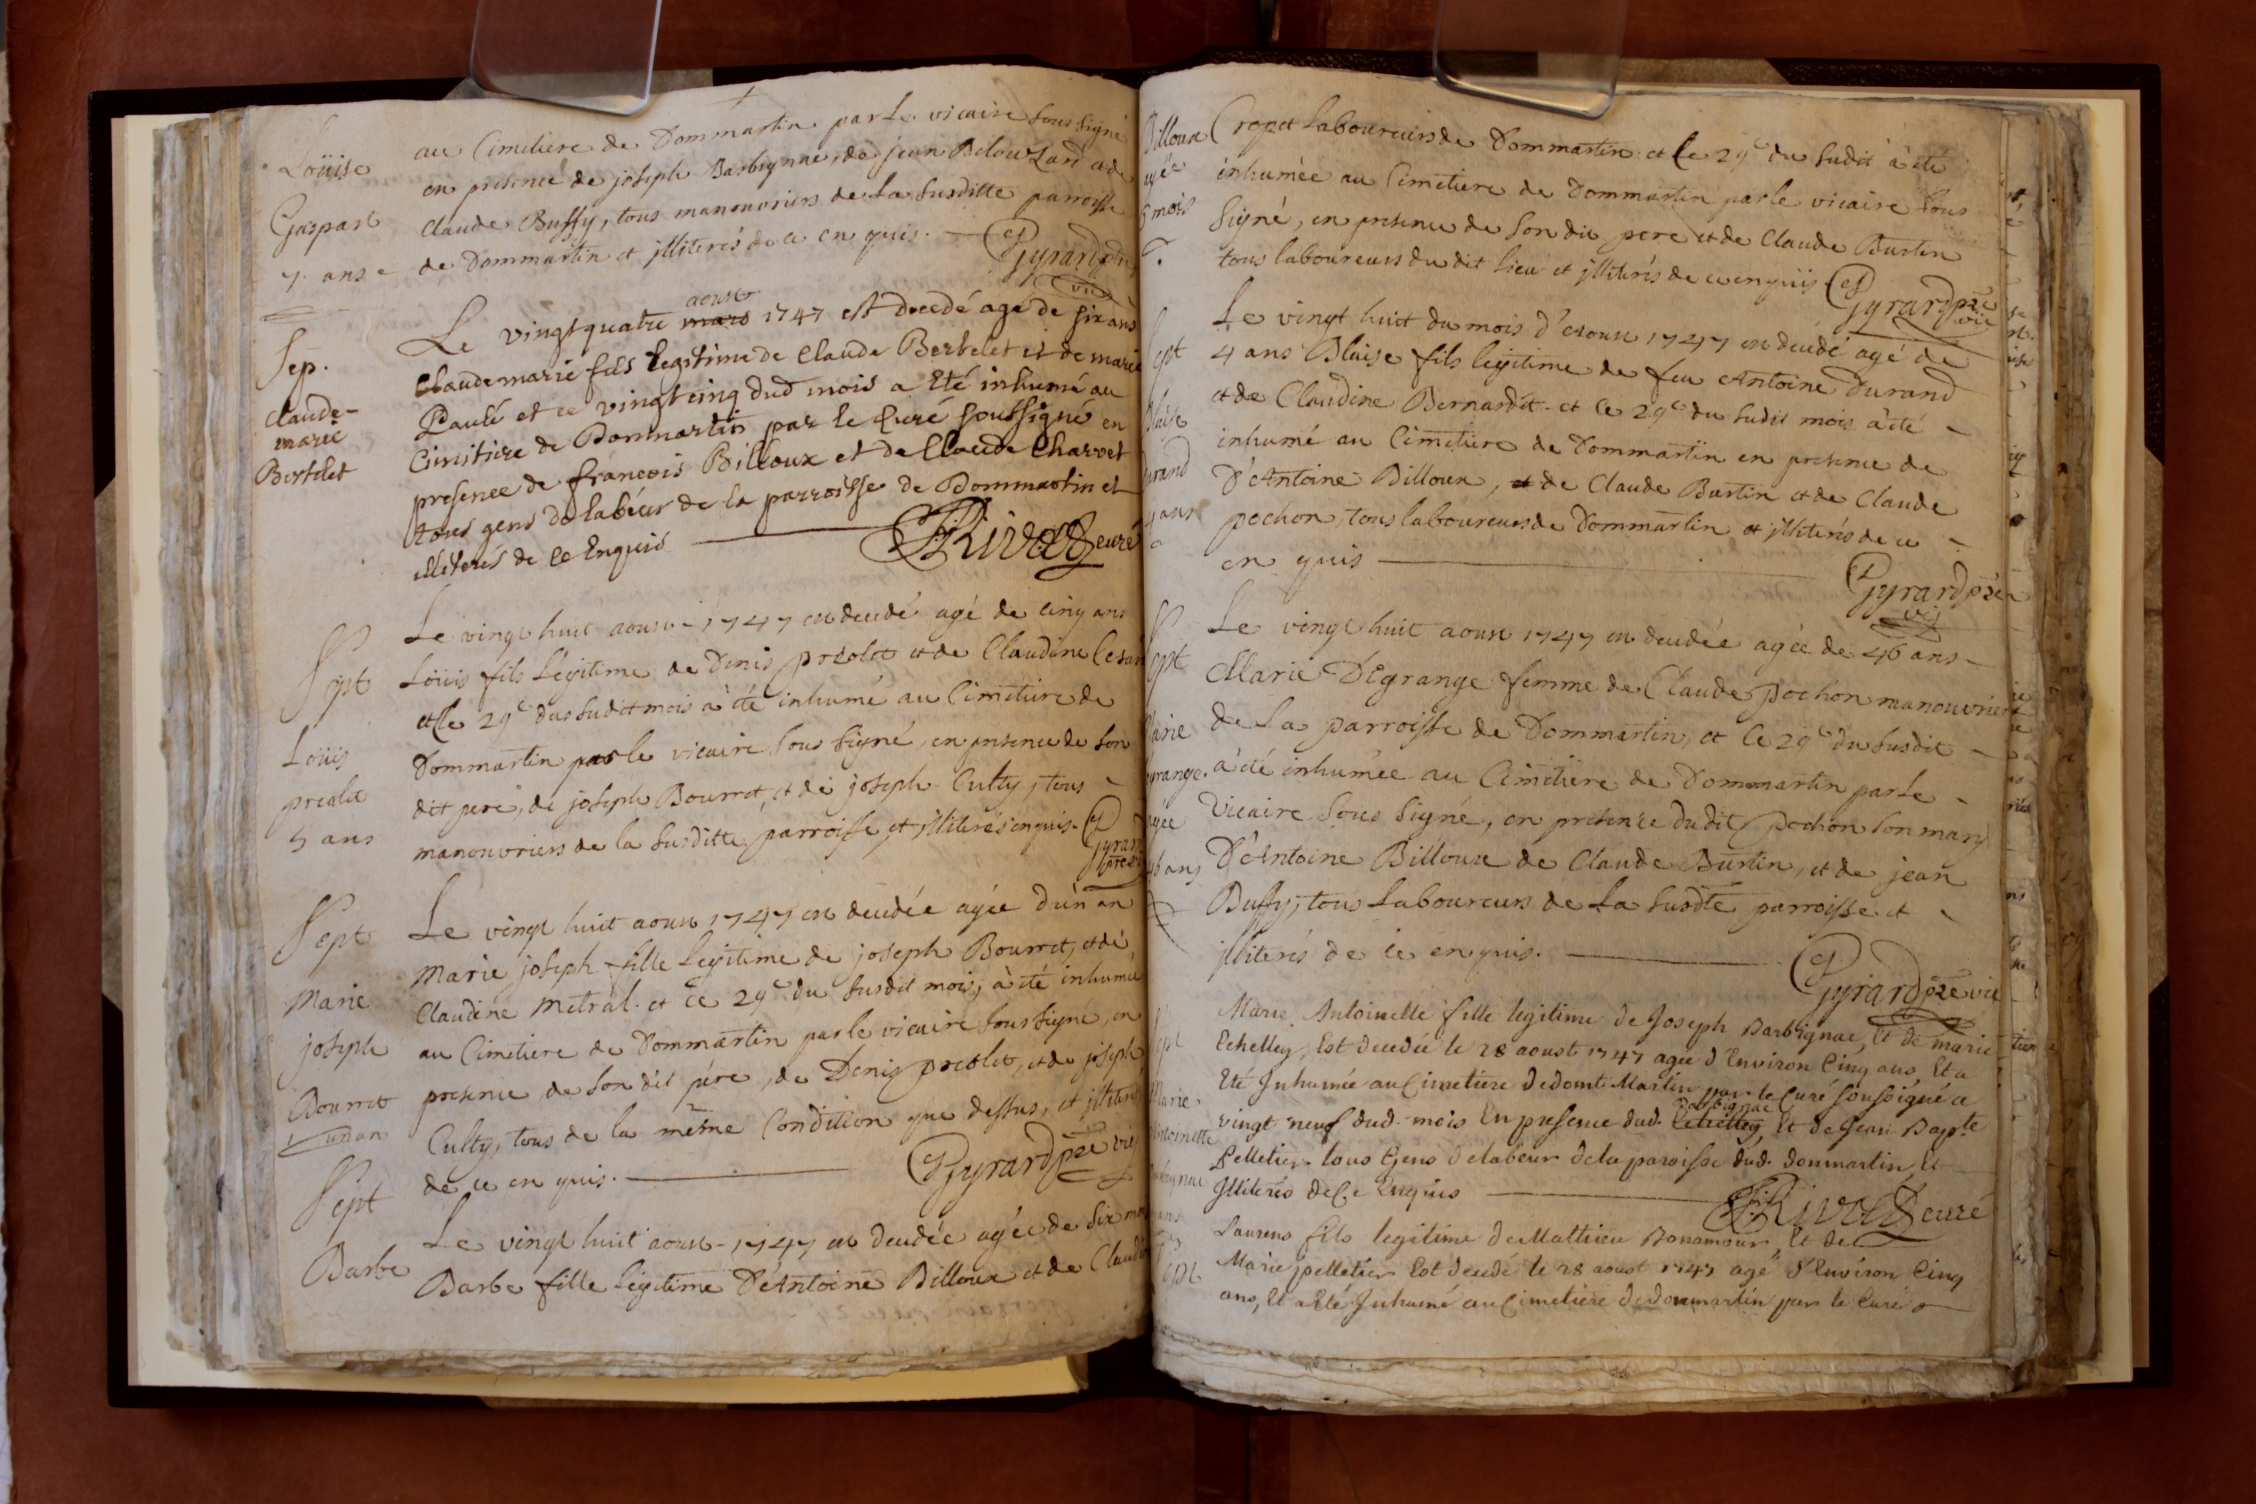 Loüise
Gaspart
7. ans
au Cimetiere de Dommartin par le vicaire sous signé
en presence de joseph Barbignac, de jean Belouzard et de
Claude Buffy, tous manouvriers de la susditte parroisse
de Dommartin et jlliterés de ce enquis. Gyrard ptre
vic
Sep.
Claude-
marie
Bertelet
aoust
Le vingt quatre mars 1747 est decedé agé de six ans
Claude marie fils legitime de Claude Bertelet et de marie
Paulé et ce vingt cinq dud mois a eté inhumé au
Cimitiere de Dommartin par le Curé soussigné en
presence de françois Billoux et de Claude Charvet
tous gens de labeur de la parroisse de Dommartin et
illiterés de ce Enquis Rivod curé
Sept
Loüis
prealet
5 ans
Le vingt huit aoust 1747 est decedé agé de cinq ans
Loüis fils legitime de Denis prealet et de Claudine Cesar
et le 29e du susdit mois à été inhumé au Cimetiere de
Dommartin par le vicaire sous signé, en presence de son
dit pere, de joseph Bourret, et de joseph Culty, tous
manouvriers de la susditte parroisse et jlliterés enquis. Gyrard
ptre
Sept
Marie
joseph
Bourret
un an
Le vingt huit aoust 1747 est decedée agée d'un an
Marie joseph fille legitime de joseph Bourret, et de
Claudine Metral. et ce 29e du susdit mois, à été inhumée
au Cimetiere de Dommartin par le vicaire sous signé, en
presence de son dit pére, de Denis prealet, et de joseph
Culty, tous de la même Condition que dessus, et jlliterés
de ce enquis. Gyrard ptre vic
Sept
Barbe
Le vingt huit aoust 1747 est decedée agée de six mois
Barbe fille legitime D'Antoine Billoux et de Claudine
Billoux
agée
6 mois
Cropet laboureurs de Dommartin. et le 29e du susdit à été
inhumée au Cimetiere de Dommartin par le vicaire sous
signé, en presence de son dit pere et de Claude Burtin
tous laboureurs du dit lieu et jlliterés de ce enquis Gyrard ptre
vic
Sept
Blaise
Durand
4 ans
Le vingt huit du mois d'aoust 1747 est decedé agé de
4 ans Blaise fils legitime de feu Antoine Durand
et de Claudine Bernardet. et le 29e du susdit mois à été
inhumé au Cimetiere de Dommartin en presence de
D'Antoine Billoux, de Claude Burtin et de Claude
pochon, tous laboureurs de Dommartin et jlliterés de ce
en quis Gyrard ptre
vic
Sept
Marie
Degrange.
agée
46 ans
Le vingt huit aoust 1747 est decedée agée de 46 ans
Marie Degrange femme de Claude Pochon manouvrier
de la parroisse de Dommartin, et le 29e du susdit
à été inhumée au Cimetiere de Dommartin par le
Vicaire sous signé, en presence dudit Pochon son mary
D'Antoine Billoux de Claude Burtin, et de jean
Buffy, tous laboureurs de la susdte parroisse et
jlliterés de ce enquis.
Gyrard ptre vic
Sept
Marie
Antoinette
Barbignac
Marie Antoinette fille legitime de Joseph Barbignac, Et de marie
Echelley, Est decedée le 28 aoust 1747 agée d'Environ Cinq ans, Et a
Eté Inhumée au Cimetiere de domt Martin par le Curé soussigné ce
Barbignac
vingt neuf dud. mois En presence dud. Echelley, Et de Jean Bapte
Pelletier tous Gens de labeur de la paroisse dud. donmartin Et
Jlliterés de Ce Enquis Rivod curé
Sept
Laurens fils legitime de Mathieu Bonamour Et de
Marie pelletier Est decedé le 28 aoust 1747 agé d'Environ Cinq
ans, Et a Eté Inhumé au Cimetiere de donmartin par le Curé